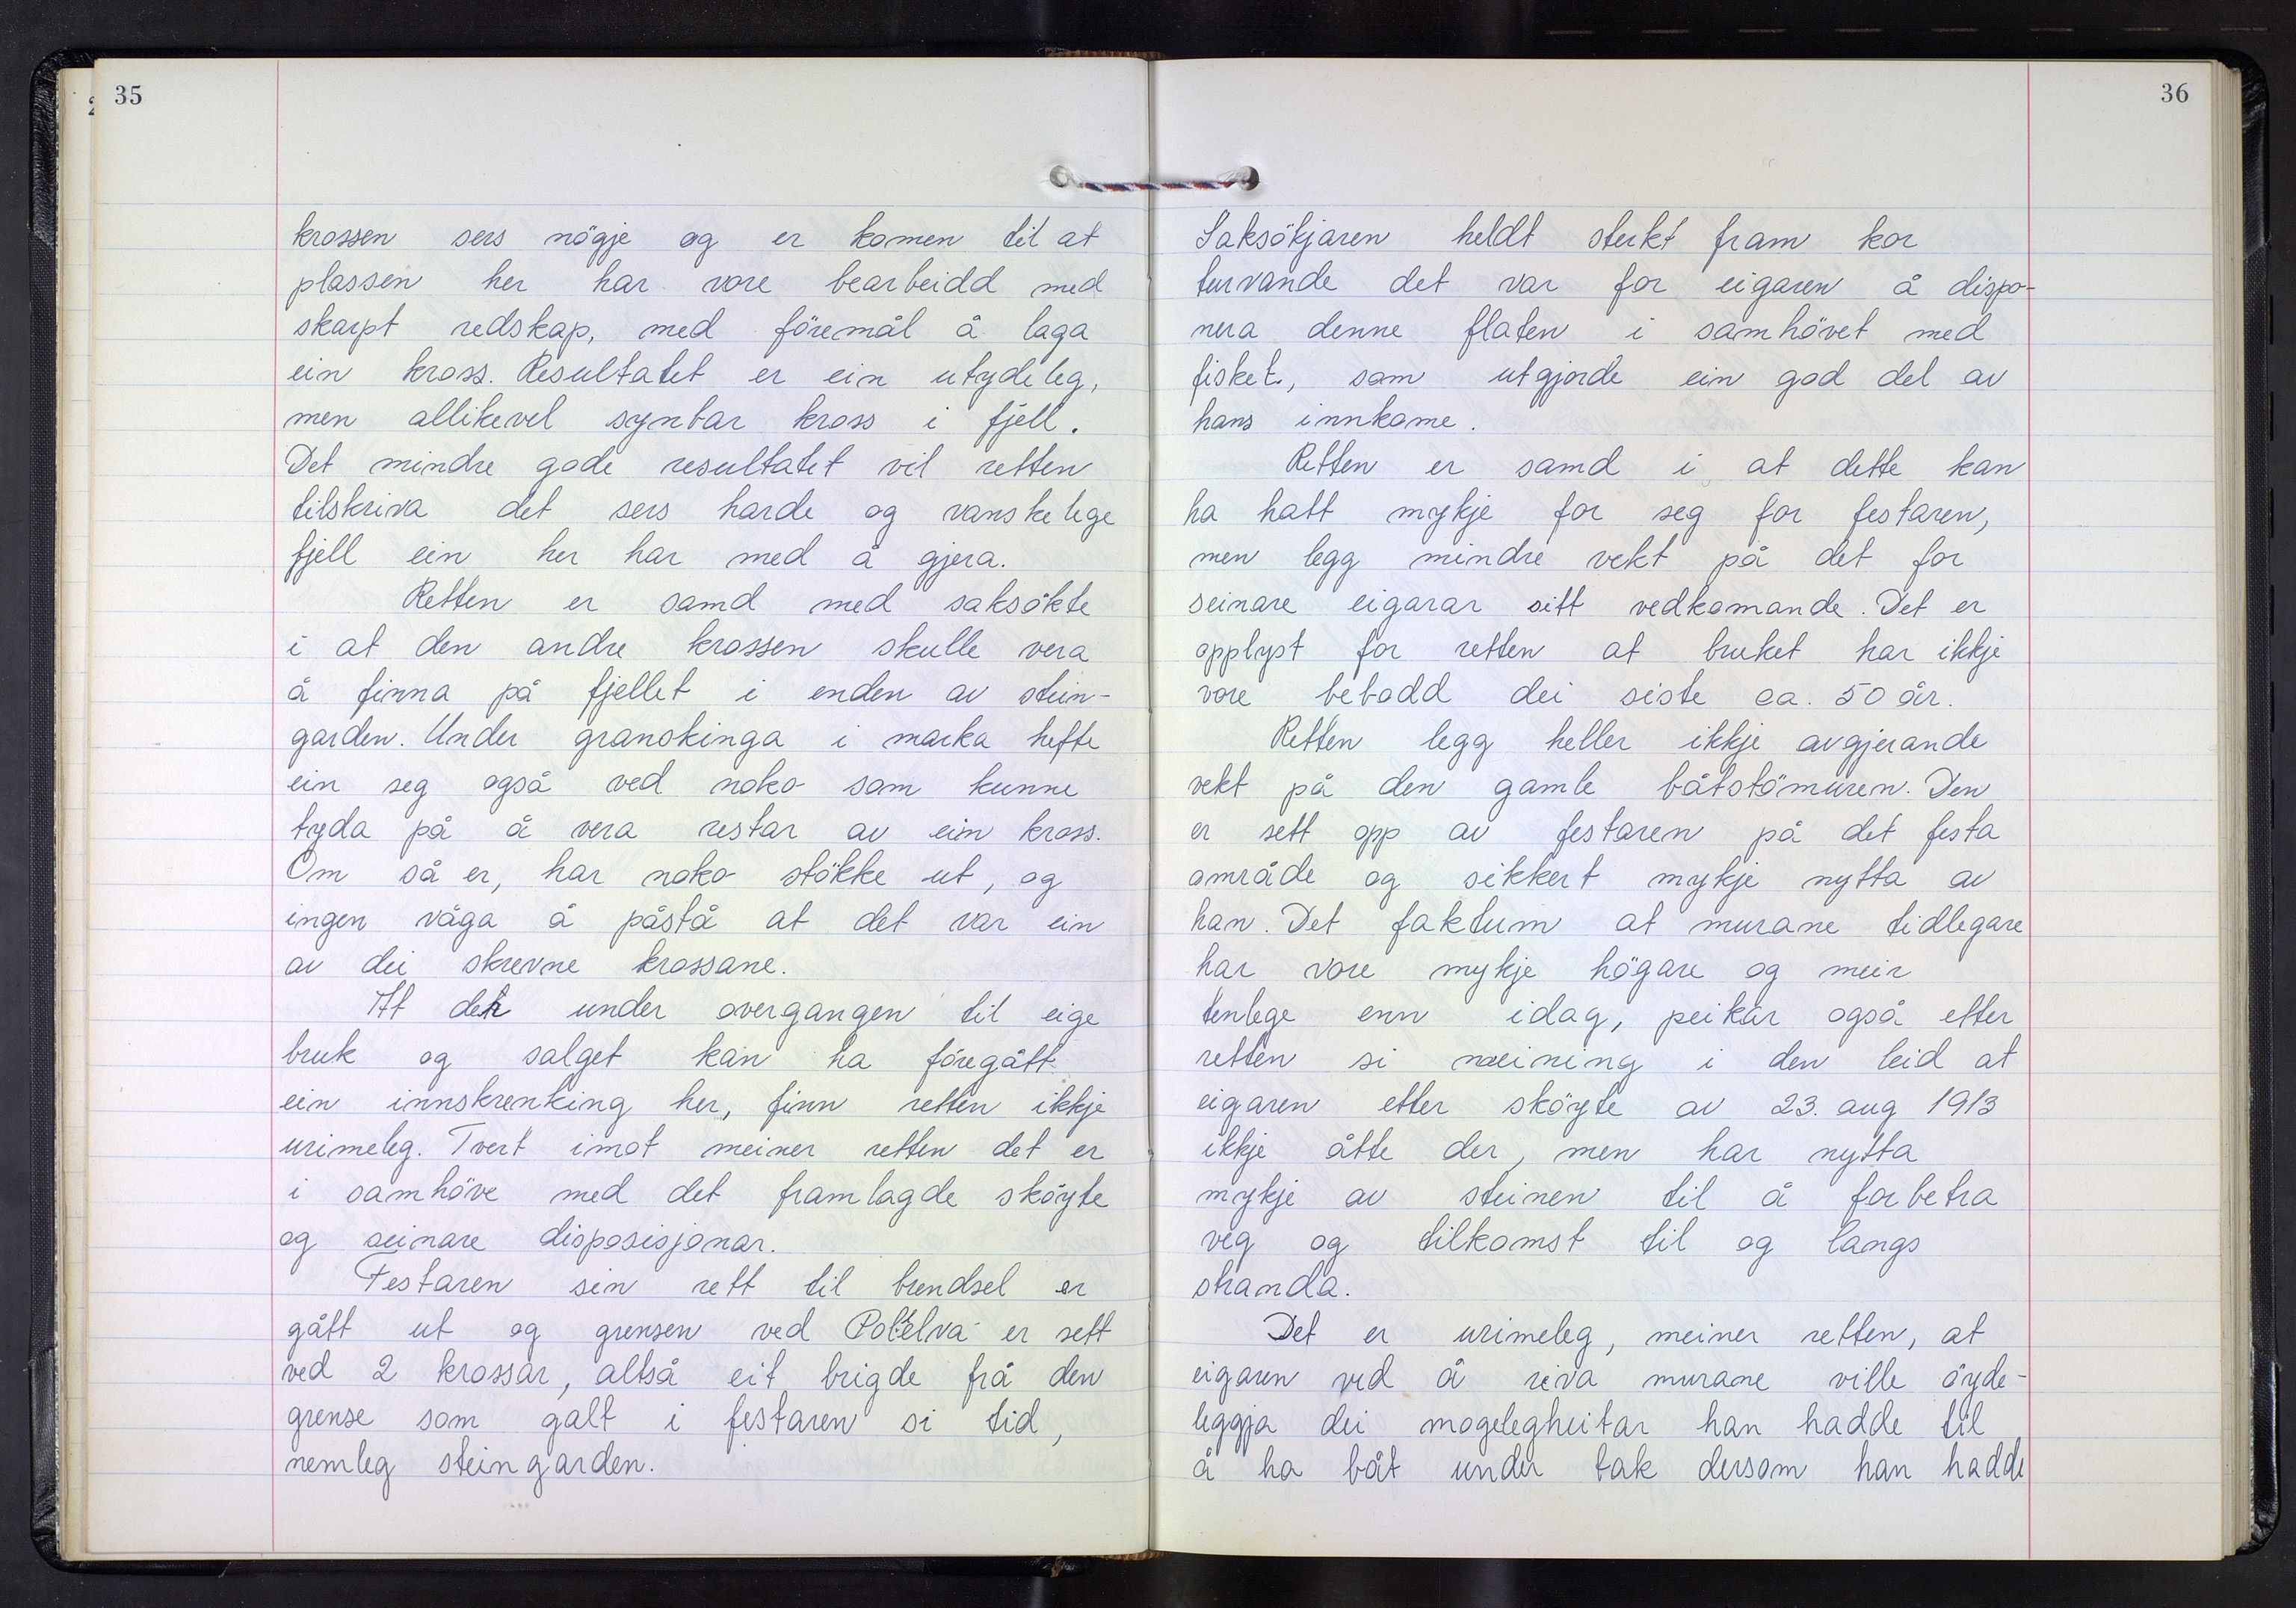 35
krossen sers nögje og er komen til at
plassen her har vore bearbeidd med
skarpt redskap, med föremål å laga
ein kross. Resultatet er ein utydeleg,
men allikevel synbar kross i fjell.
Det mindre gode resultatet vil retten
tilskriva det sers harde og vanskelege
fjell ein her har med å gjera.
Retten er samd med saksökte
i at den andre krossen skulle vera
å finna på fjellet i enden av stein-
garden. Under granskinga i marka hefte
ein seg også ved noko som kunne
tyda på å vera restar av ein kross.
Om så er, har noko stökke ut, og
ingen våga å påstå at det var ein
av dei skrevne krossane.
At det under overgangen til eige
bruk og salget kan ha föregått
ein innskrenking her, finn retten ikkje
urimeleg. Tvert imot meiner retten det er
i samhöve med det framlagde sköyte
og seinare disposisjonar.
Festaren sin rett til brendsel er
gått ut og grensen ved er sett
ved 2 krossar, altså eit brigde frå den
grense som galt i festaren si tid,
nemleg steingarden.
36
Saksökjaren heldt sterkt fram kor
turvande det var for eigaren å dispo-
nera denne flaten i samhövet med
fisket, som utgjorde ein god del av
hans innkome.
Retten er samd i at dette kan
ha hatt mykje for seg for festaren,
men legg mindre vekt på det for
seinare eigarar sitt vedkomande. Det er
opplyst for retten at bruket har ikkje
vore bebodd dei siste ca. 50 år.
Retten legg heller ikkje avgjerande
vekt på den gamle båtstömuren. Den
er sett opp av festaren på det festa
område og sikkert mykje nytta av
han. Det faktum at murane tidlegare
har vore mykje högare og meir
tenlege enn idag, peikar også etter
retten si meining i den leid at
eigaren etter sköyte av 23. aug 1913
ikkje åtte der, men har nytta
mykje av steinen til å forbetra
veg og tilkomst til og langs
stranda.
Det er urimeleg, meiner retten, at
eigaren ved å riva murane ville öyde-
leggja dei mogelegheitar han hadde til
å ha båt under tak dersom han hadde